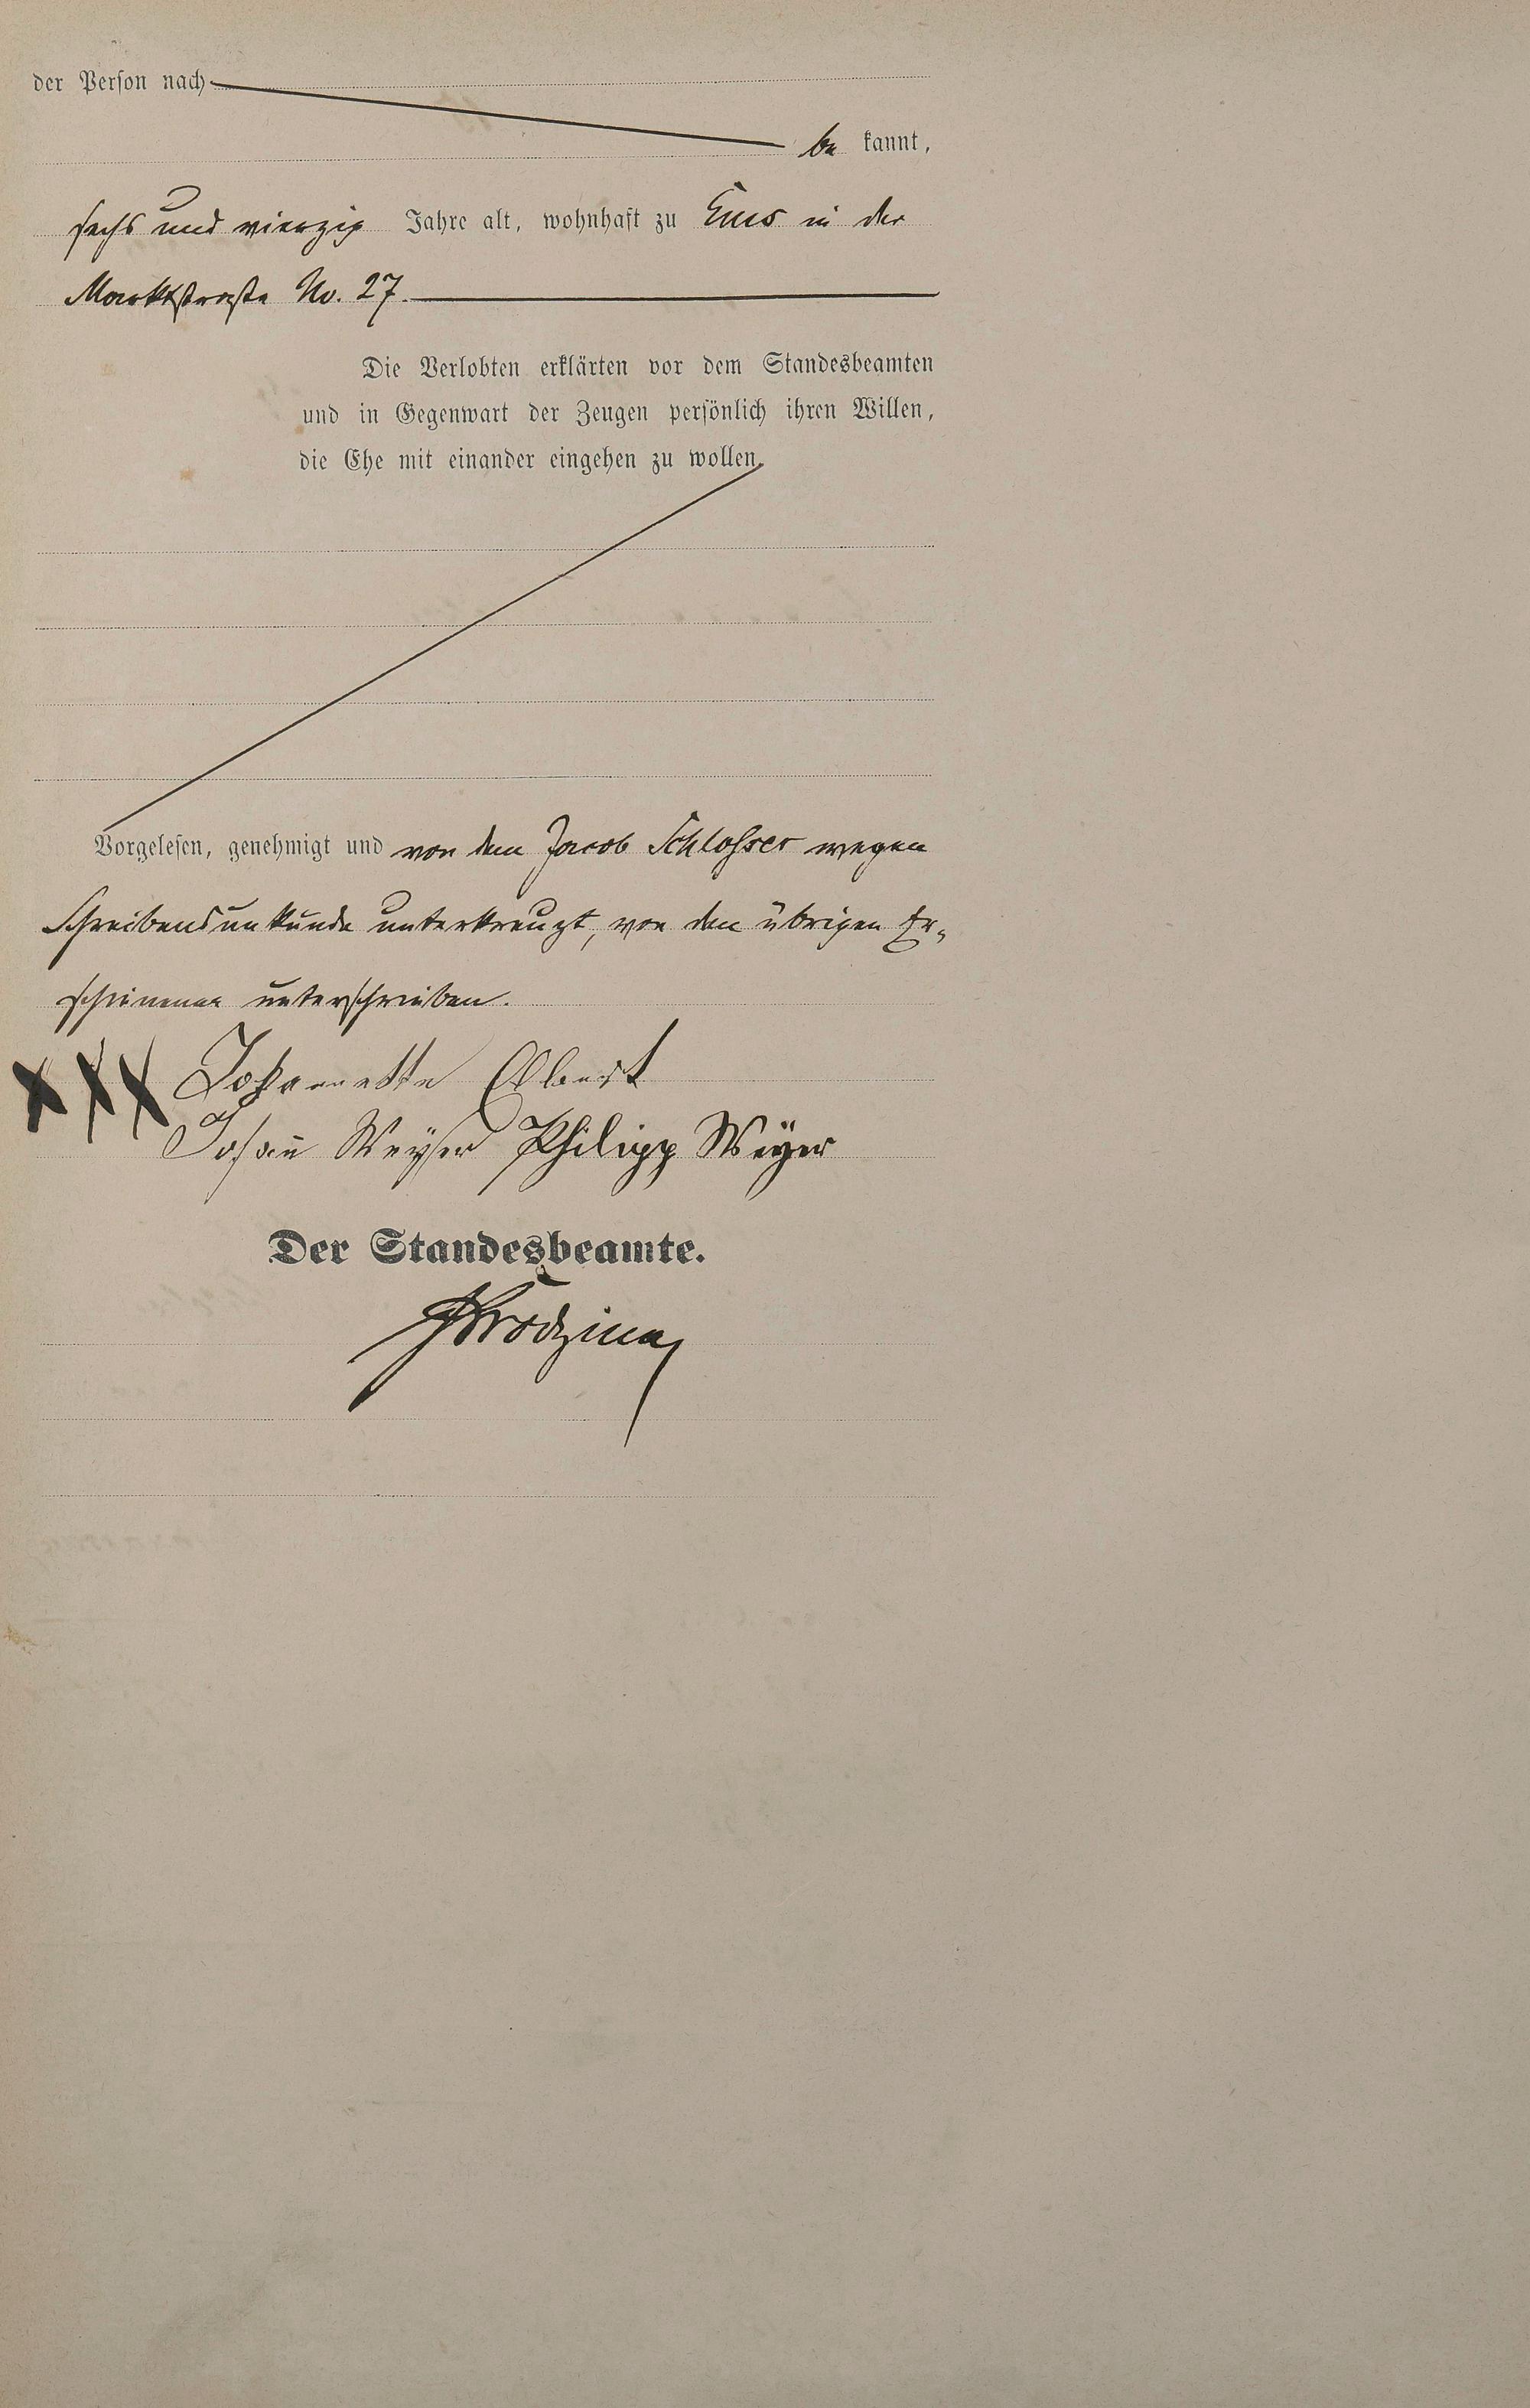 der Person nach
be kannt,
sechs und vierzig Jahre alt, wohnhaft zu Ems in der
Marktstraße No. 27.
Die Verlobten erklärten vor dem Standesbeamten
und in Gegenwart der Zeugen persönlich ihren Willen,
die Ehe mit einander eingehen zu wollen.
Vorgelesen, genehmigt und von dem Jacob Schlosser wegen
Schreibensunkunde unterkreuzt, von den übrigen Er-
schienenen unterschrieben.
XXX Johannette Elbert
Johann Weyer Philipp Weyer
Der Standesbeamte.